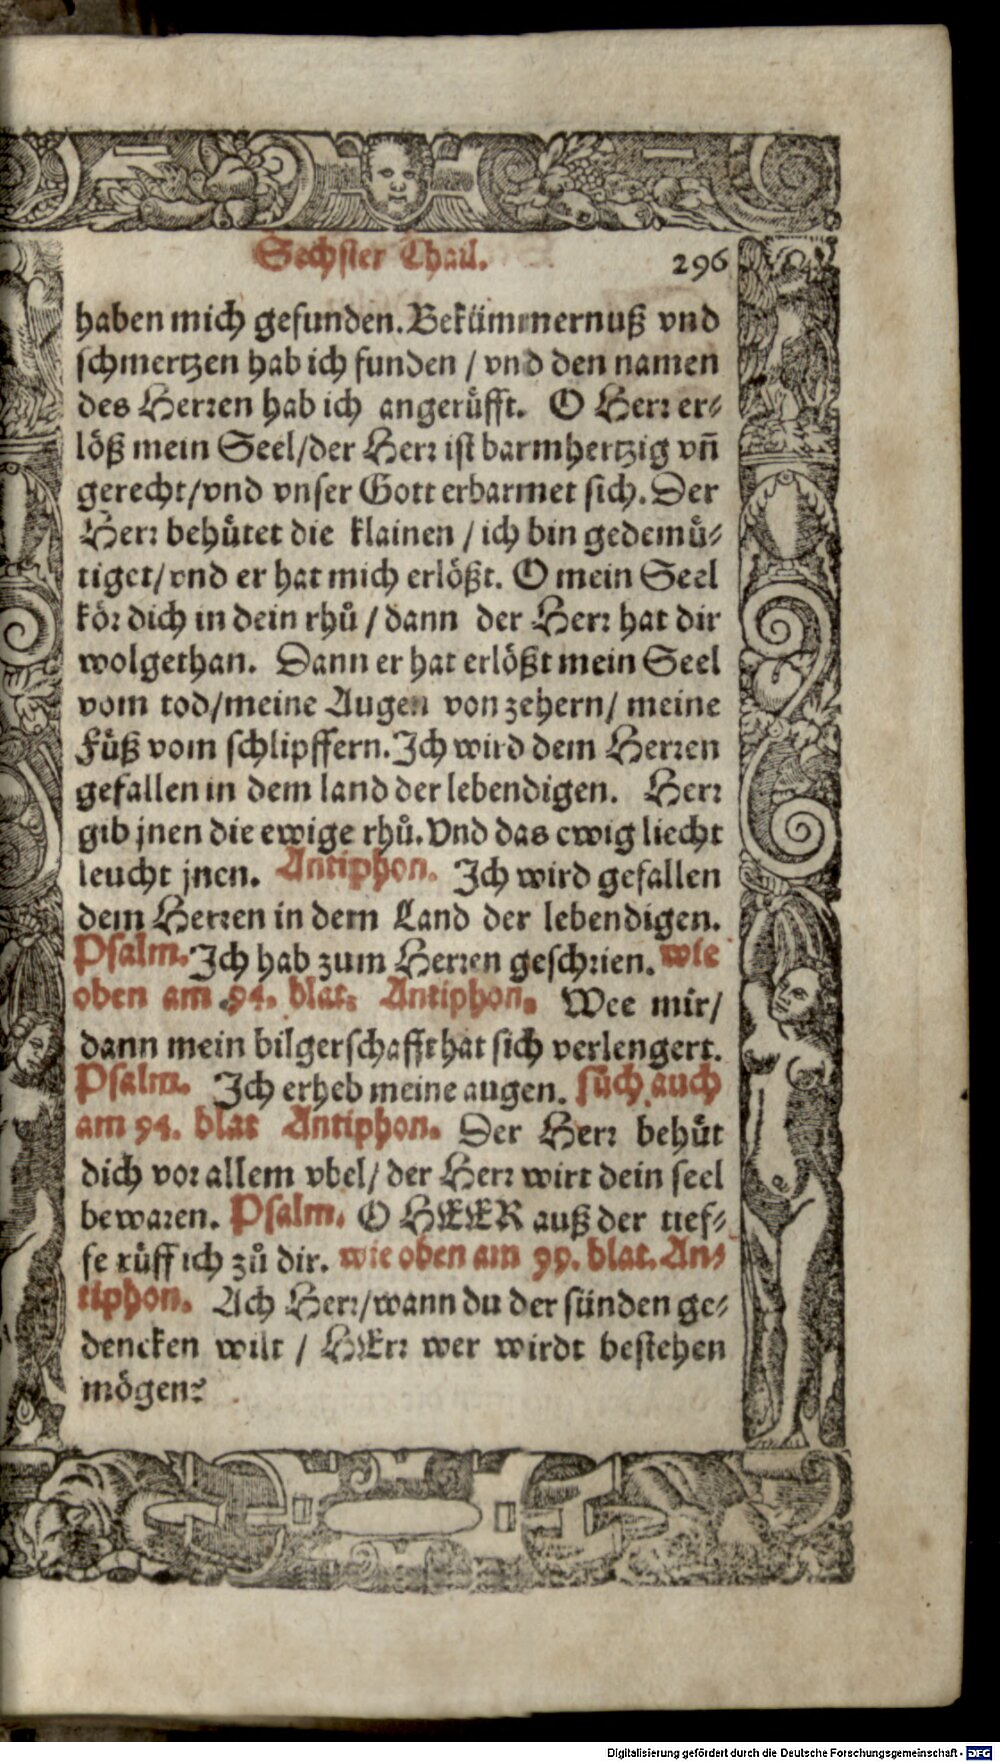 Sechster Thail. 296
haben mich gefunden. Bekümmernuß vnd
schmertzen hab ich funden / vnd den namen
des Herren hab ich angerüfft. O Herr er⸗
löß mein Seel/der Herr ist barmhertzig vñ
gerecht/vnd vnser Gott erbarmet sich. Der
Herr behütet die klainen / ich bin gedemü⸗
tiget/vnd er hat mich erlößt. O mein Seel
kör dich in dein rhů / dann der Herr hat dir
wolgethan. Dann er hat erlößt mein Seel
vom tod/meine Augen von zehern/ meine
Füß vom schlipffern. Ich wird dem Herren
gefallen in dem land der lebendigen. Herr
gib jnen die ewige rhů. Vnd das ewig liecht
leucht jnen. Antiphon. Ich wird gefallen
dem Herren in dem Land der lebendigen.
Psalm. Ich hab zum Herren geschrien. wie
oben am 94. blat. Antiphon. Wee mir/
dann mein bilgerschafft hat sich verlengert.
Psalm. Ich erheb meine augen. such auch
am 94. blat Antiphon. Der Herr behüt
dich vor allem vbel/ der Herr wirt dein seel
bewaren. Psalm. O HERR auß der tief⸗
fe rüff ich zů dir. wie oben am 99. blat. An⸗
tiphon. Ach Herr/wann du der sünden ge⸗
dencken wilt / HErr wer wirdt bestehen
mögen?
Digitalisierung gefördert durch die Deutsche Forschungsgemeinschaft - DFG